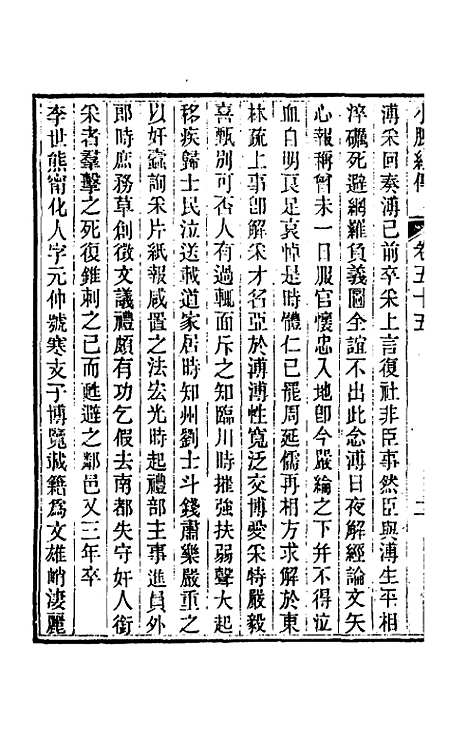 小腆紀傳 卷五十五 二
溥采回奏溥已前卒采上言復社非臣事然臣與溥生平相
淬礪死避網羅負義圖全誼不出此念溥日夜解經論文矢
心報稱曾未一日服官懷忠入地卽今嚴綸之下幷不得泣
血自明良足哀悼是時體仁已罷周延儒再相方求解於東
林疏上事卽解采才名亞於溥溥性寬泛交博愛采特嚴毅
喜甄別可否人有過輒面斥之知臨川時摧強扶弱聲大起
移疾歸士民泣送載道家居時知州劉士斗錢肅樂嚴重之
以奸蠹詢采片紙報咸置之法宏光時起禮部主事進員外
郎時庶務草創徵文議禮頗有功乞假去南都失守奸人銜
采者羣擊之死復錐刺之已而甦避之鄰邑又三年卒
李世熊甯化人字元仲號寒支子博覽載籍爲文雄峭淒麗